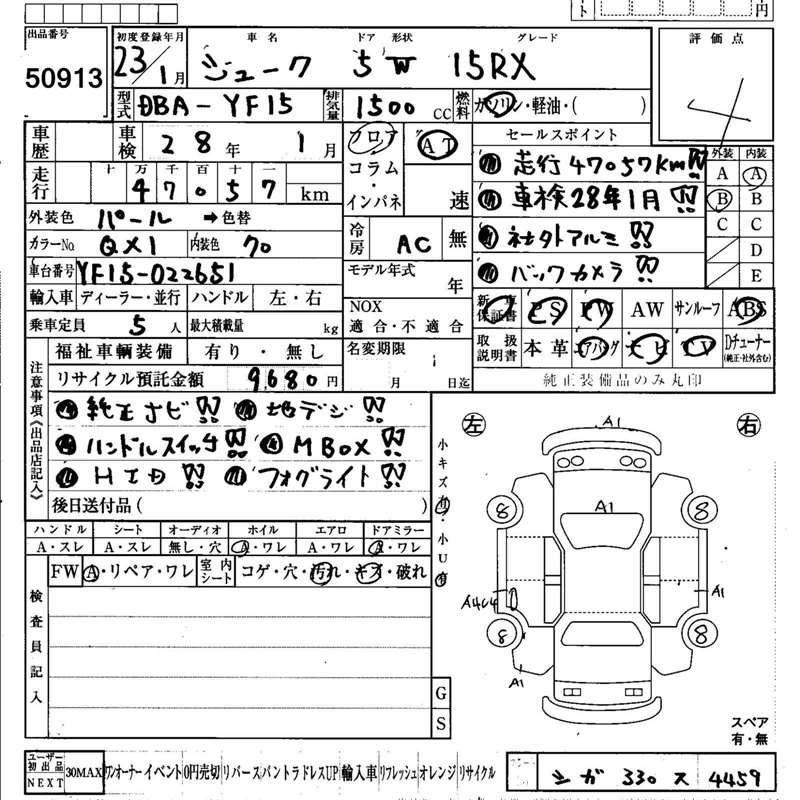 円
出品番号 初度登録年月 車名 ドア 形状 グレード 評価点
50913 23/1月 ジューク 5 W 15RX 4
型式 DBA-YF15 排気量 1500 CC 燃料 ガソリン・軽油・( )
車歴 車検 28年 1月 フロア AT セールスポイント 外装 内装
コラム・インパネ 速
走行47057Km!! A A
走行 十万千百十一 47057 km 車検28年1月!! B B
外装色 パール →色替 社外アルミ!! C C
カラーNo. QX1 内装色 70 冷房 AC 無 バックカメラ!! D
E
車台番号 YF15-022651 モデル年式 年
輸入車 ディーラー・並行 ハンドル 左・右 NOX 適合・不適合 新車保証書 PS PW AW サンルーフ ABS
乗車定員 5人 最大積載量 kg 取扱説明書 本革 エアバッグ ナビ TV Dチューナー(純正・社外含む)
福祉車輌装備 有り・無し 名変期限 月 日迄 純正装備品のみ丸印
リサイクル預託金額 9680円
注意事項《出品店記入》
純正ナビ!! 地デジ!!
ハンドルスイッチ!! MBOX!!
HID!! フォグライト!!
後日送付品( )
小キズ有・小U有
ハンドル シート オーディオ ホイル エアロ ドアミラー
A・スレ A・スレ 無し・穴 A・ワレ A・ワレ A・ワレ
FW A・リペア・ワレ 室内シート コゲ・穴・汚れ・キズ・破れ
検査員記入
G
S
左 右
A1
8 A1 8
A1
8 8
A1
スペア
有・無
ユーザー初出品 NEXT 30MAX ワンオーナー イベント 0円売切 リバース パントラ ドレスUP 輸入車 リフレッシュ オレンジ リサイクル
シガ 330 ス 4459